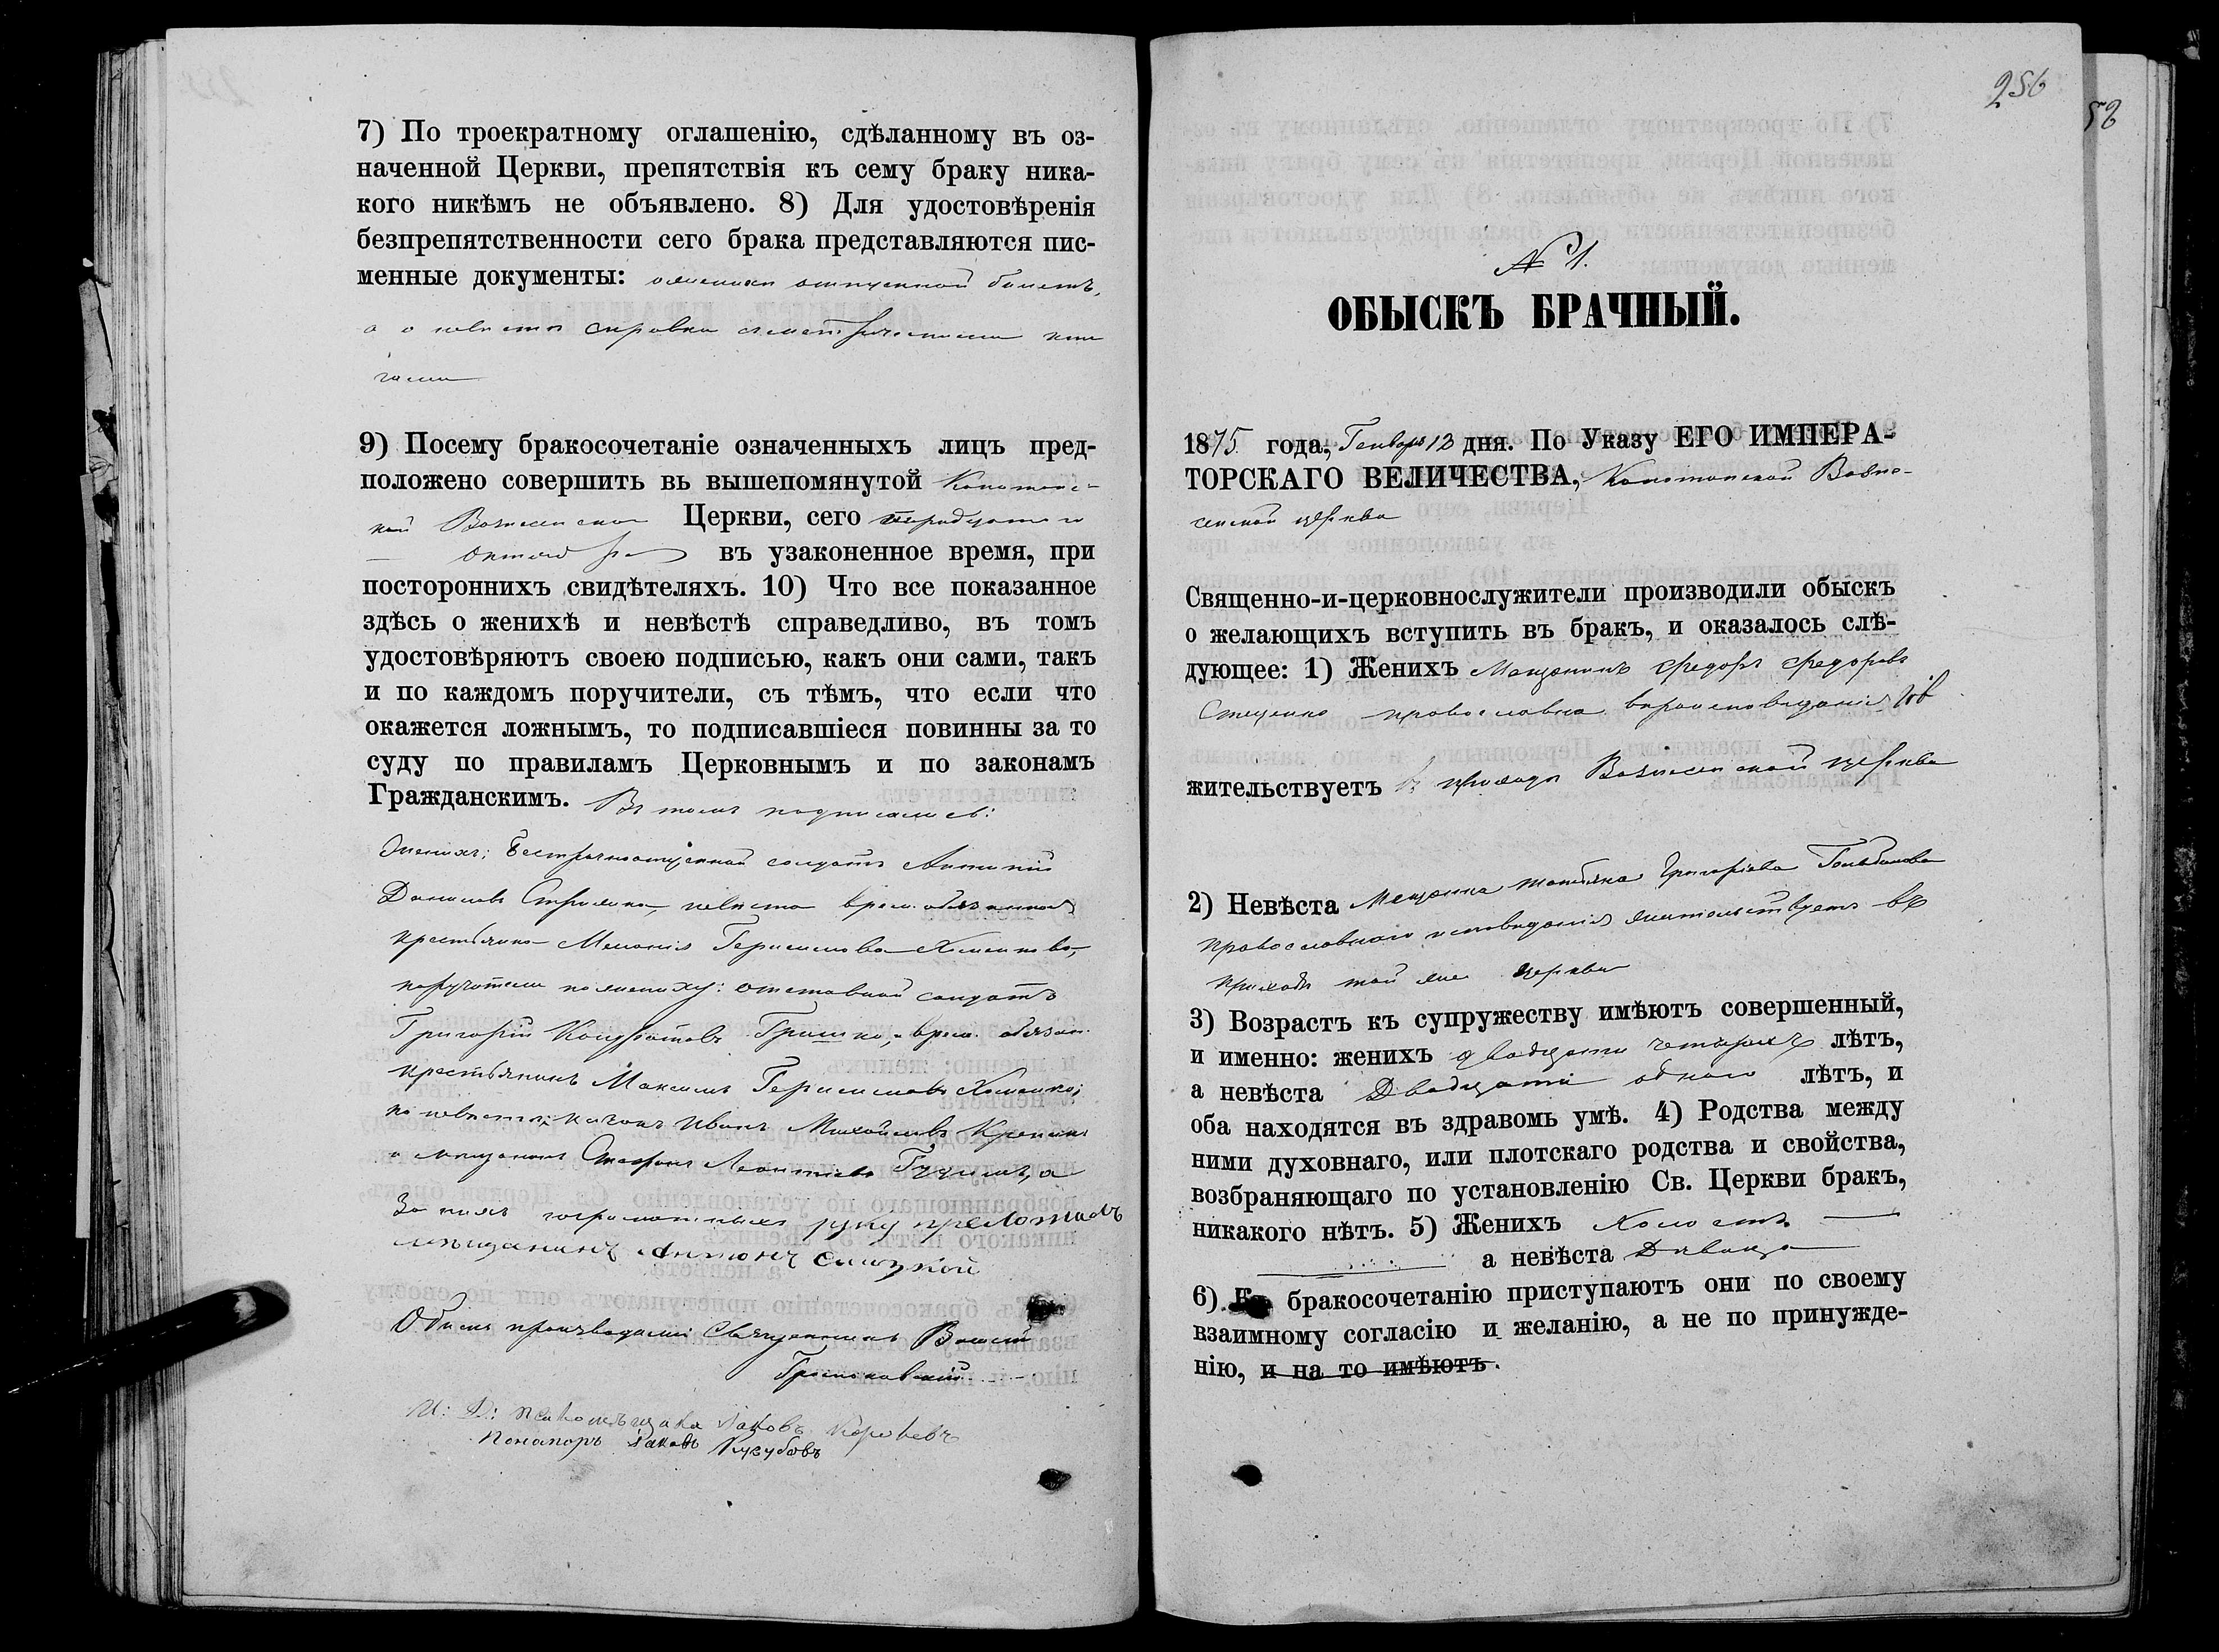 7) По троекратному оглашенію, сдѣланному въ оз-
наченной Церкви, препятствія къ сему браку ника-
кого никѣмъ не объявлено. 8) Для удостовѣренія
безпрепятственности сего брака представляются пис-
менные документы: о женихѣ отпускной билетъ,
а о невѣстѣ справка с метрическими кни
гами
9) Посему бракосочетаніе означенныхъ лицъ пред-
положено совершить вь вышепомянутой Конотопс-
кой Вознесенской Церкви, сего
октября въ узаконенное время, при
постороннихъ свидѣтеляхъ. 10) Что все показанное
здѣсь о женихѣ и невѣстѣ справедливо, въ томъ
удостовѣряютъ своею подписью, какъ они сами, такъ
и по каждомъ поручители, съ тѣмъ, что если что
окажется ложнымъ, то подписавшіеся повинны за то
суду по правиламъ Церковнымъ и по законамъ
Гражданскимъ. Въ томъ подписались:
Женихъ; безсрочноотпускной солдатъ
Даниловъ невѣста врем. обязанная
крестьянка Меланія Герасимова Хоменкова,
поручители по жениху: отставной солдатъ
Григорій Кондратовъ Гришко, врем. обязан.
крестьянинъ Максимъ Герасимовъ Хоменко;
по невѣстѣ: козакъ Иванъ Михайловъ
и мещанинъ Леонтіевъ а
за нихъ неграмотныхъ руку приложилъ
мѣщанинъ Антонъ
Обыскъ производилъ Священникъ
И: Д: псаломьщика Яковъ
Пономарь Яковъ
256
58
№ 1.
ОБЫСКЪ БРАЧНЫЙ.
1875 года, Генваря 12 дня. По Указу ЕГО ИМПЕРА-
ТОРСКАГО ВЕЛИЧЕСТВА, Конотопской Возне-
сенской церкви
Священно-и-церковнослужители производили обыскъ
о желающихъ вступить въ бракъ, и оказалось слѣ-
дующее: 1) Женихъ Мещанинъ Федоръ Федоровъ
Стеценко православна вѣроисповѣданія
жительствуетъ въ приходѣ Вознесенской церкви
2) Невѣста Мещанка Татьяна Григоріева
православнаго исповѣданія жительствуетъ въ
приходѣ той же церкви
3) Возрастъ къ супружеству имѣютъ совершенный,
и именно: женихъ двадцати четырехъ лѣтъ,
а невѣста Двадцати одного лѣтъ, и
оба находятся въ здравомь умѣ. 4) Родства между
ними духовнаго, или плотскаго родства и свойства,
возбраняющаго по установленію Св. Церкви бракъ,
никакого нѣтъ. 5) Женихъ Холостъ
а невѣста Дѣвица
6) Къ бракосочетанію приступаютъ они по своему
взаимному согласію и желанію, а не по принужде-
нію, и на то имѣютъ.